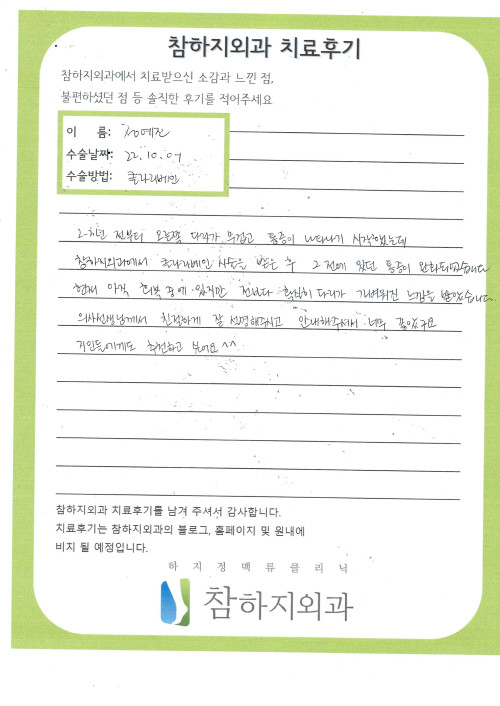 참하지외과 치료후기
참하지외과에서 치료받으신 소감과 느낀 점,
불편하셨던 점 등 솔직한 후기를 적어주세요
이 름: 정예진
수술날짜: 22.10.07
수술방법: 클라리베인
2-3년 전부터 오른쪽 다리가 무겁고 통증이 나타나기 시작했는데
참하지외과에서 클라리베인 시술을 받은 후 그 전에 있던 통증이 완화되었습니다
현재 아직 회복 중에 있지만 전보다 확실히 다리가 가벼워진 느낌을 받았습니다.
의사선생님께서 친절하게 잘 설명해주시고 안내해주셔서 너무 좋았구요
지인들에게도 추천하고 싶어요^^
참하지외과 치료후기를 남겨 주셔서 감사합니다.
치료후기는 참하지외과의 블로그, 홈페이지 및 원내에
비치 될 예정입니다.
하지정맥류클리닉
참하지외과